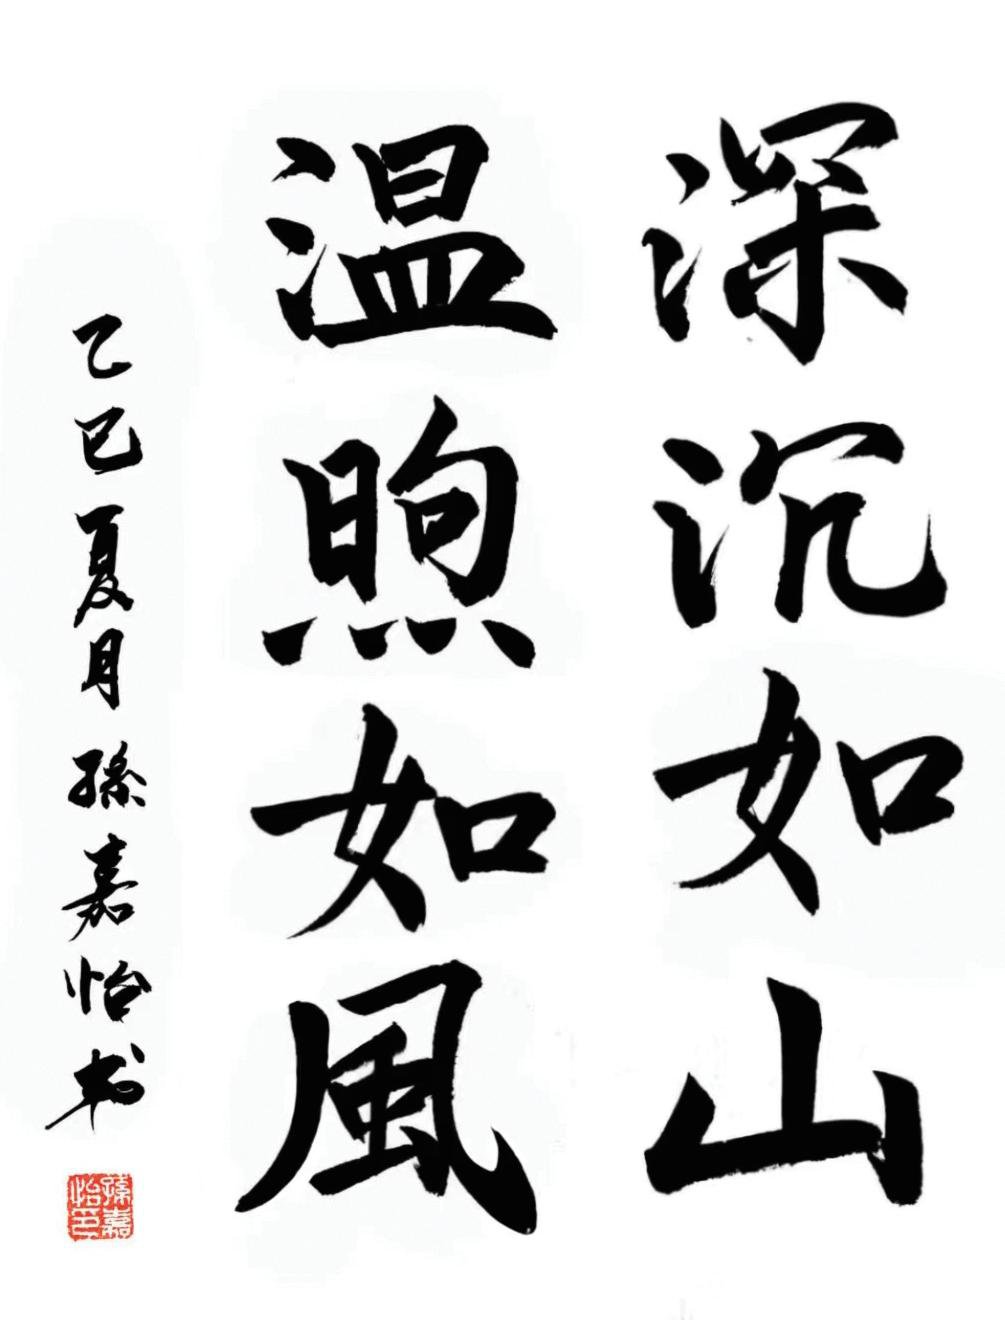 深沉如山
温煦如風
乙巳夏月孫嘉怡书
孫嘉
怡印